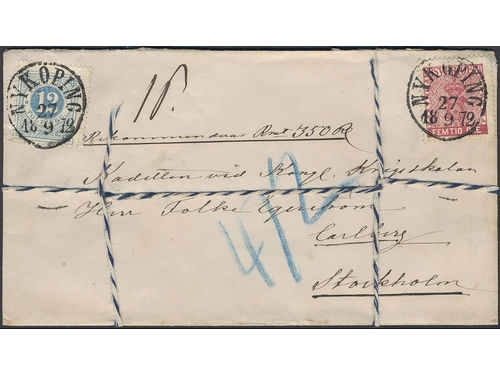 NYKÖPING
27
18 9 72
12
NYKÖPING
27
18 9 72
FEMTIO
Rekommenderas Rmt 350 R
Kadetten vid Kongl. Krigsskolan
Herr Folke Egerström
Carlberg
Stockholm